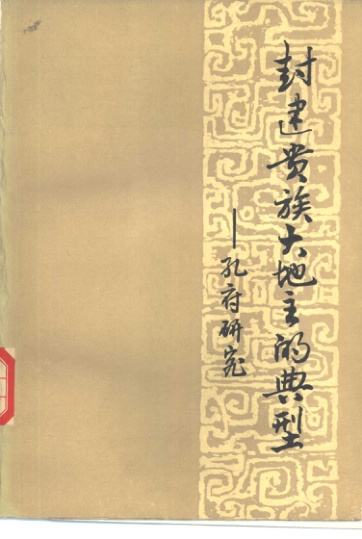 封建贵族大地主的典型
—孔府研究